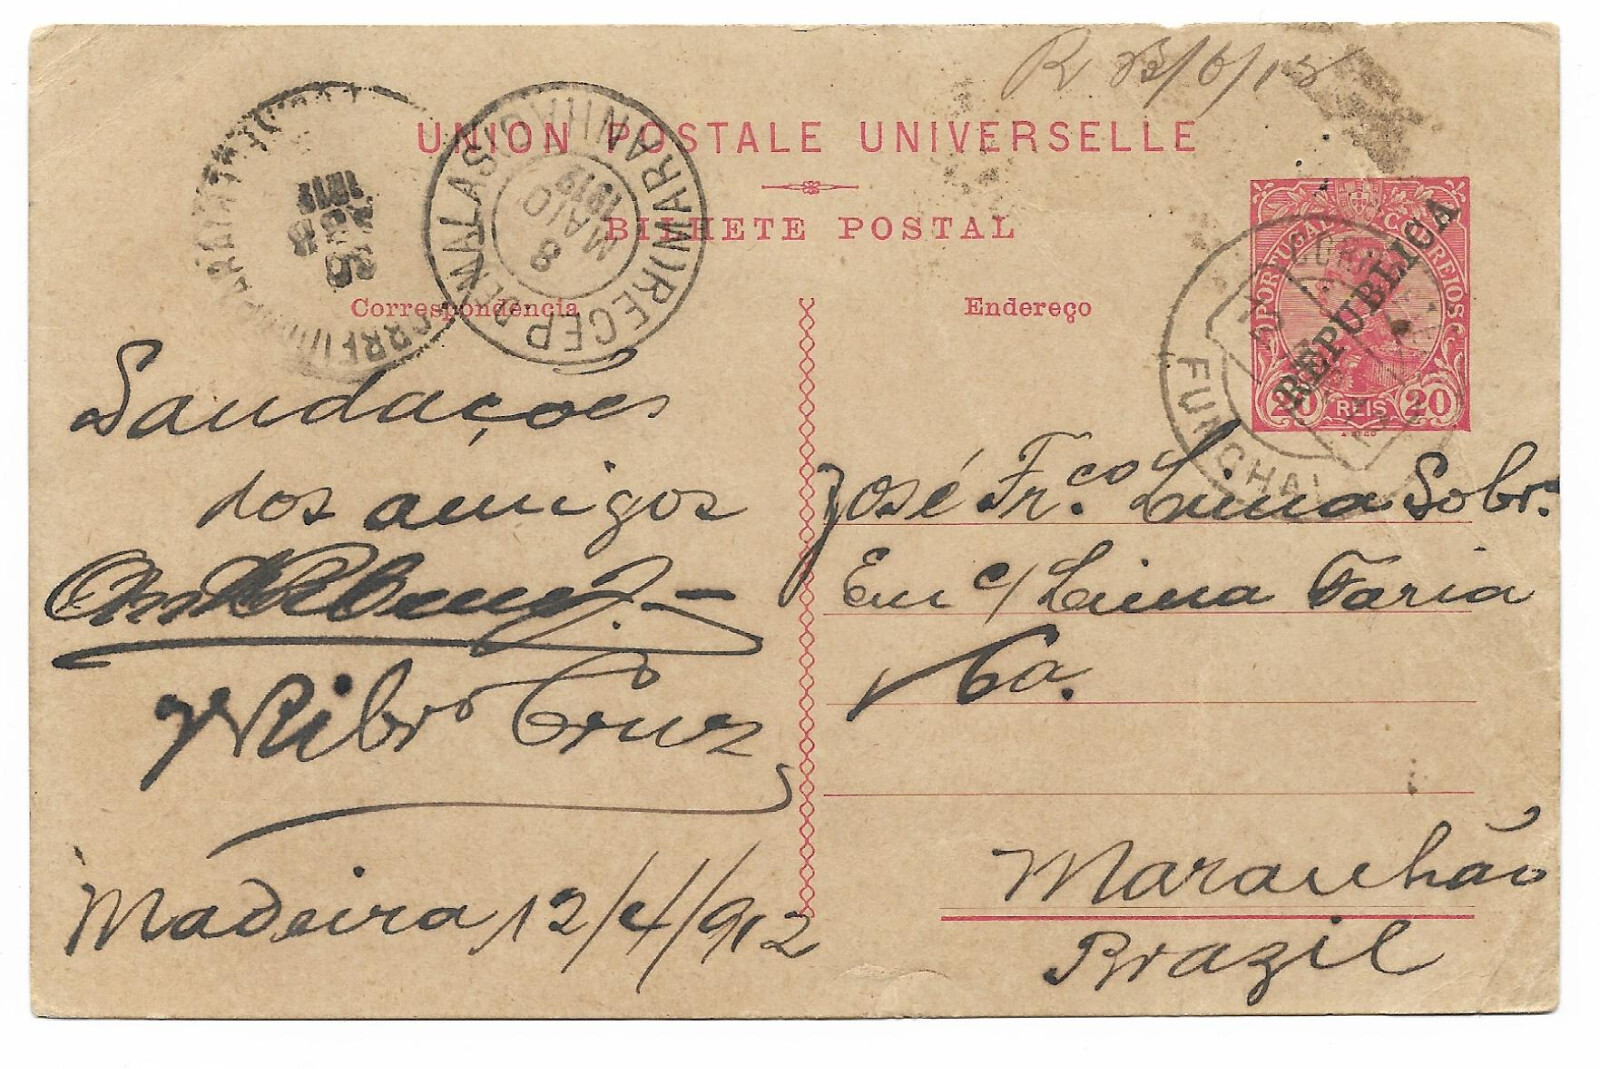 UNION POSTALE UNIVERSELLE
BILHETE POSTAL
Correspondencia
Endereço
PORTUGAL CORREIOS
REPUBLICA
20 REIS 20
FUNCHAL
RECEP DE MALAS (MARANHÃO)
8
MAIO
1912
Saudações
dos amigos
Ribro Cruz
Madeira 12/4/912
José Fr.co Lima Sobr.
Em c/ Lima Faria
Co.
Maranhão
Brazil